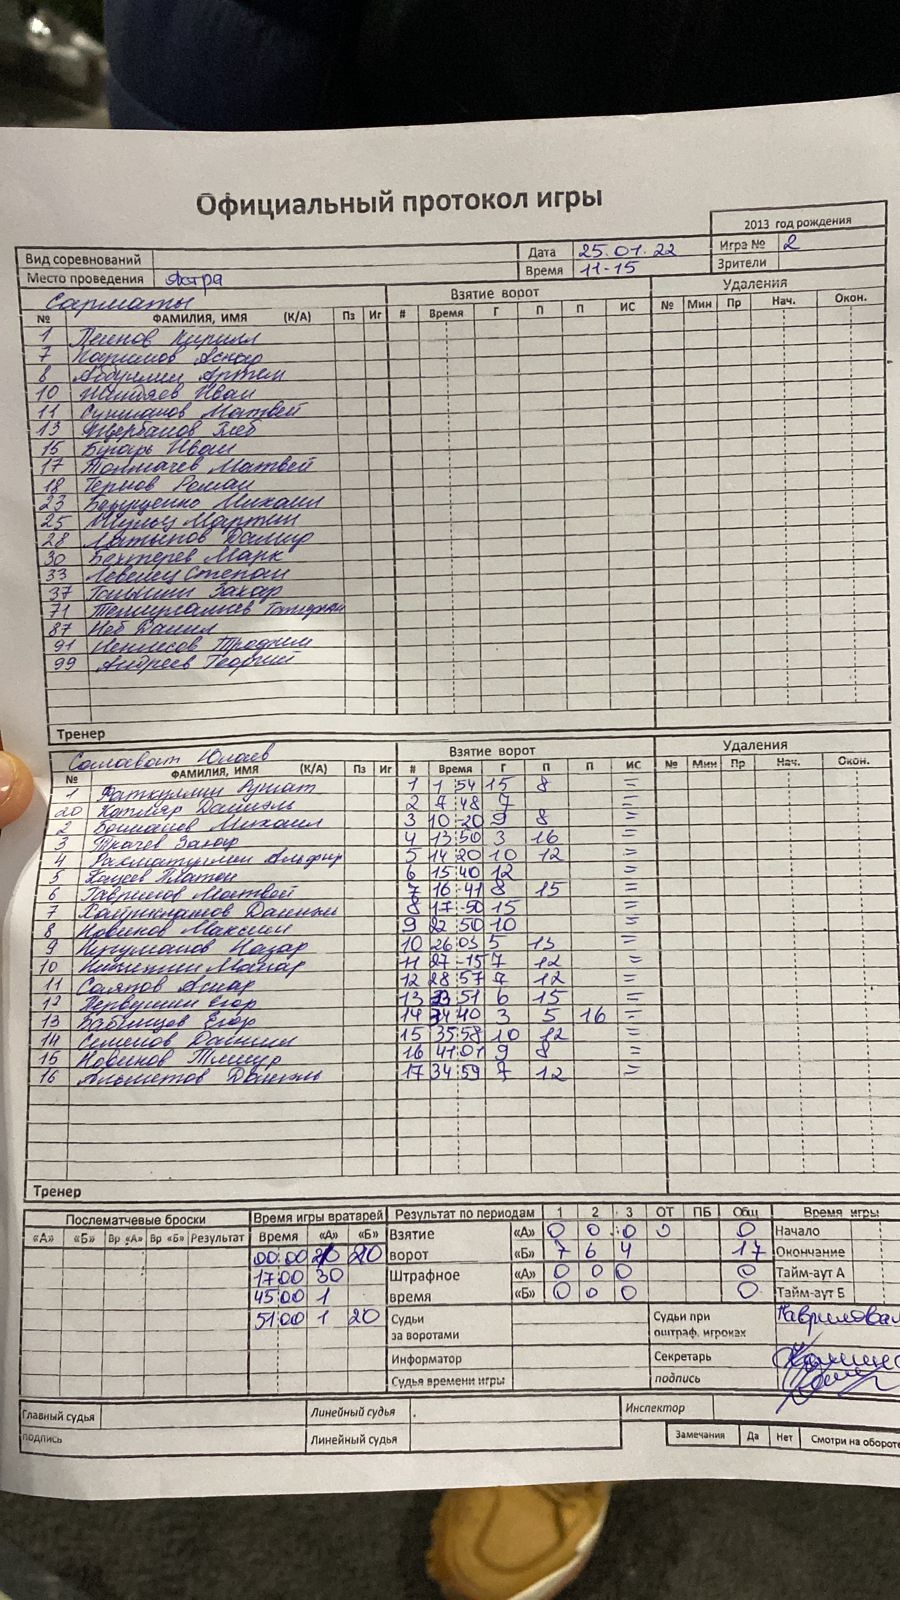 Официальный протокол игры
2013 год рождения
Вид соревнований Дата 25.01.22 Игра № 2
Место проведения Астра Время 11-15 Зрители
Сарматы Взятие ворот Удаления
№ ФАМИЛИЯ, ИМЯ (К/А) Пз Иг # Время Г П П ИС № Мин Пр Нач. Окон.
1 Кирилл
7 Каримов Аскар
8 Артем
10 Иван
11 Матвей
13 Щербаков Глеб
15 Бухарь Иван
17 Толмачев Матвей
18 Термов Роман
23 Михаил
25 Шульц Мартин
28 Латыпов Дамир
30 Бехтерев Марк
33 Степан
37 Захар
71
87 Кеб Данил
91 Трофим
99 Андреев Георгий
Тренер
Салават Юлаев Взятие ворот Удаления
№ ФАМИЛИЯ, ИМЯ (К/А) Пз Иг # Время Г П П ИС № Мин Пр Нач. Окон.
1 Фаткуллин Рушат 1 1 54 15 8 =
20 Котляр Даниэль 2 7 48 7 =
2 Михаил 3 10 20 9 8 =
3 Ткачев Захар 4 13 50 3 16 =
4 Рахматуллин Альфир 5 14 20 10 12 =
5 Кацеев Платон 6 15 40 12 =
6 Гаврилов Матвей 7 16 41 8 15 =
7 8 17 50 15 =
8 Новиков Максим 9 22 50 10 =
9 Нугуманов Назар 10 26 03 5 13 =
10 11 27 15 7 12 =
11 Саяпов Аскар 12 28 57 7 12 =
12 Первушин Егор 13 33 51 6 15 =
13 Бабинцев Егор 14 34 40 3 5 16 =
14 Семенов Даниил 15 35 58 10 12 =
15 Новиков Тимур 16 41 01 9 8 =
16 17 34 59 7 12 =
Тренер
Послематчевые броски Время игры вратарей Результат по периодам 1 2 3 ОТ ПБ Общ Время игры
«А» «Б» Вр «А» Вр «Б» Результат Время «А» «Б» Взятие ворот «А» 0 0 0 0 0 Начало
00:00 20 «Б» 7 6 4 17 Окончание
17 00 30 Штрафное время «А» 0 0 0 0 Тайм-аут А
45 00 1 «Б» 0 0 0 0 Тайм-аут Б
51 00 1 20 Судьи за воротами Судьи при оштраф. игроках
Информатор Секретарь
Судья времени игры подпись
Главный судья Линейный судья Инспектор
подпись Линейный судья Замечания Да Нет Смотри на обороте